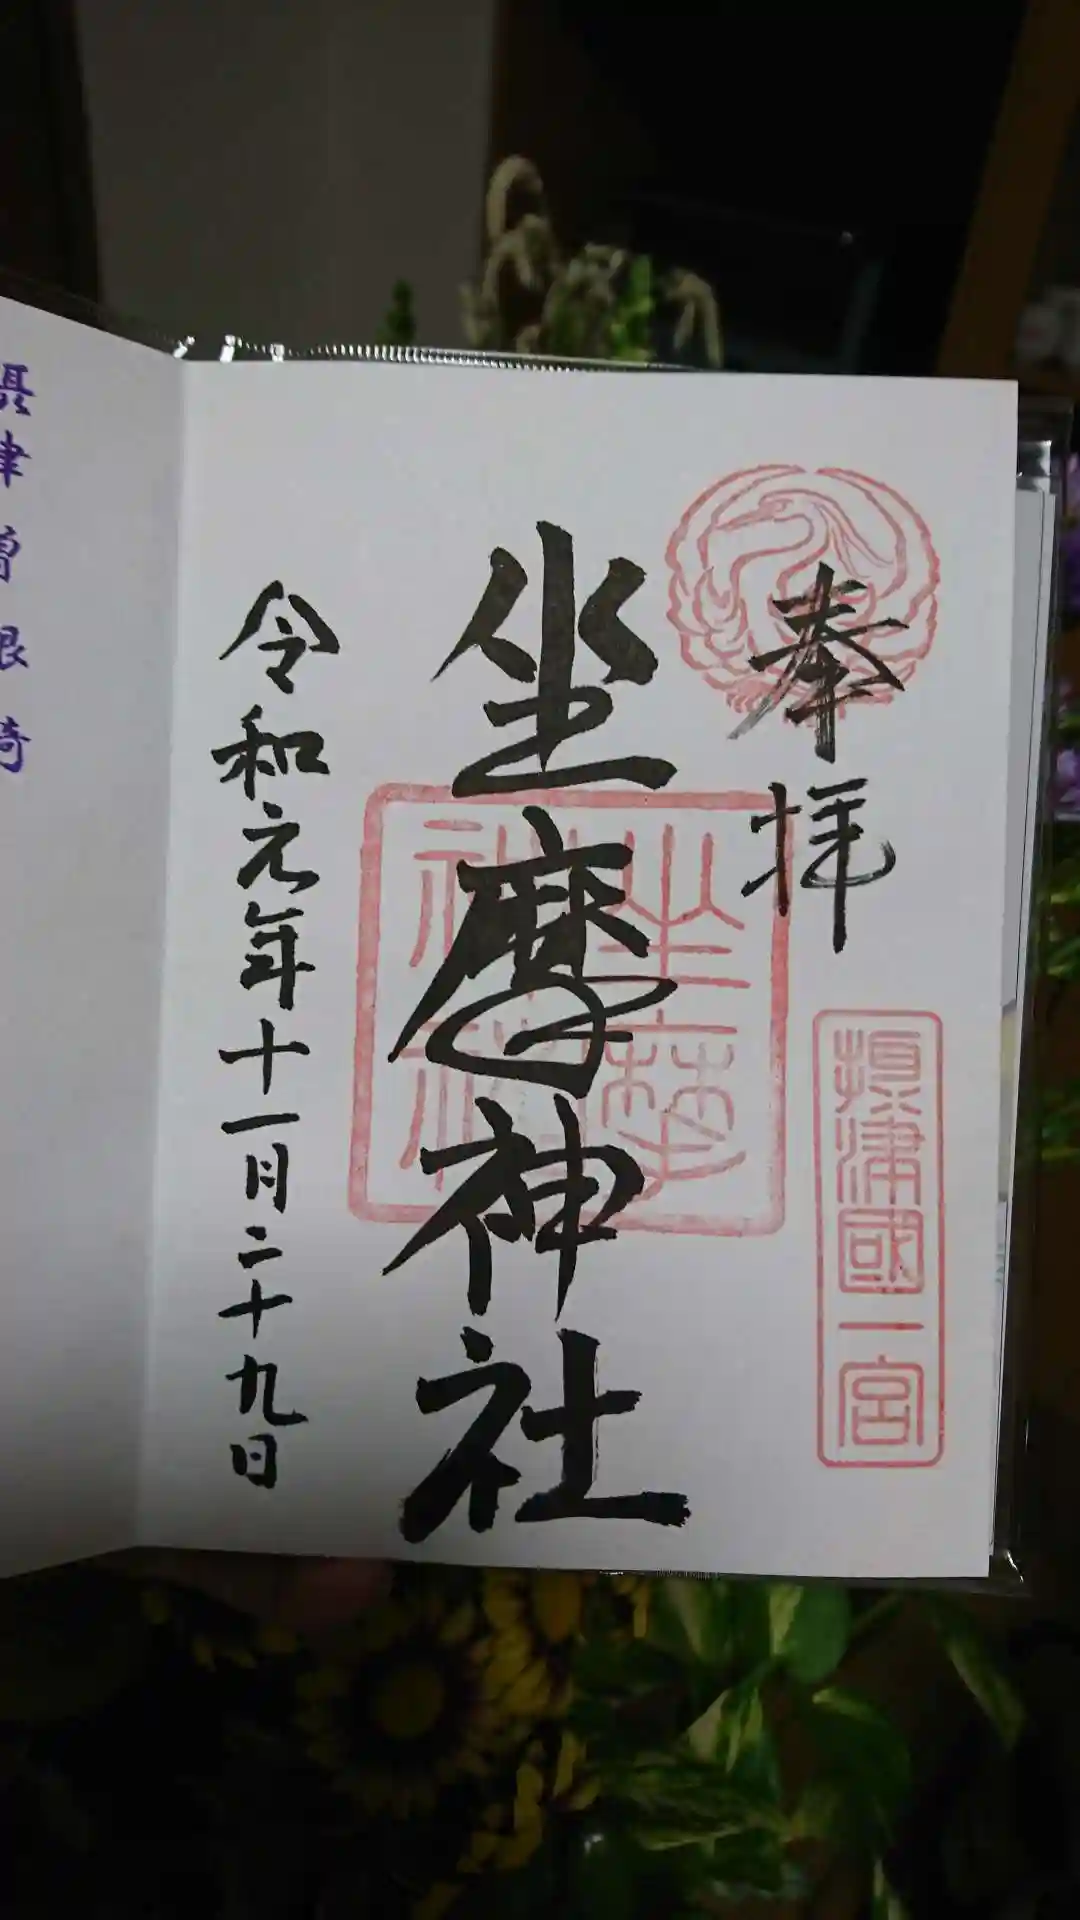 奉拝
攝津國一宮
坐摩神社
坐摩神社
令和元年十一月二十九日
津曽根崎